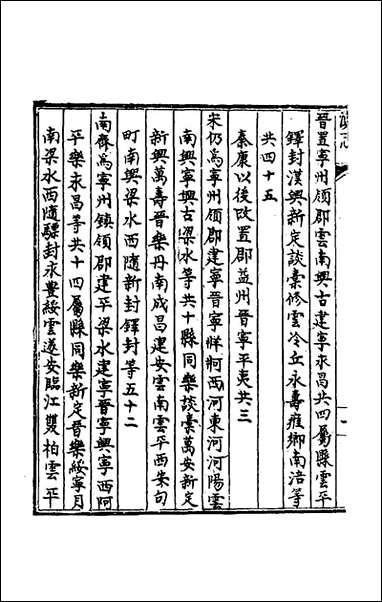 晉置寧州領郡雲南興古建寧永昌共四屬縣雲平
鐸封漢興新定談槖修雲冷丘永壽雍鄉南涪等
共四十五
秦康以後改置郡益州晉寧平夷共三
宋仍爲寧州領郡建寧晉寧牂牁西河東河河陽雲
南興寧興古梁水等共十縣同樂談槖萬安新定
新興萬壽晉樂丹南成昌建安雲南雲平西安句
町南興梁水西隨新封鐸封等五十二
南齊爲寧州鎮領郡建平梁水建寧晉寧興寧西阿
平樂永昌等共十四屬縣同樂新定晉樂綏寧月
南梁水西隨驃封永豐綏雲遂安臨江雙柏雲平